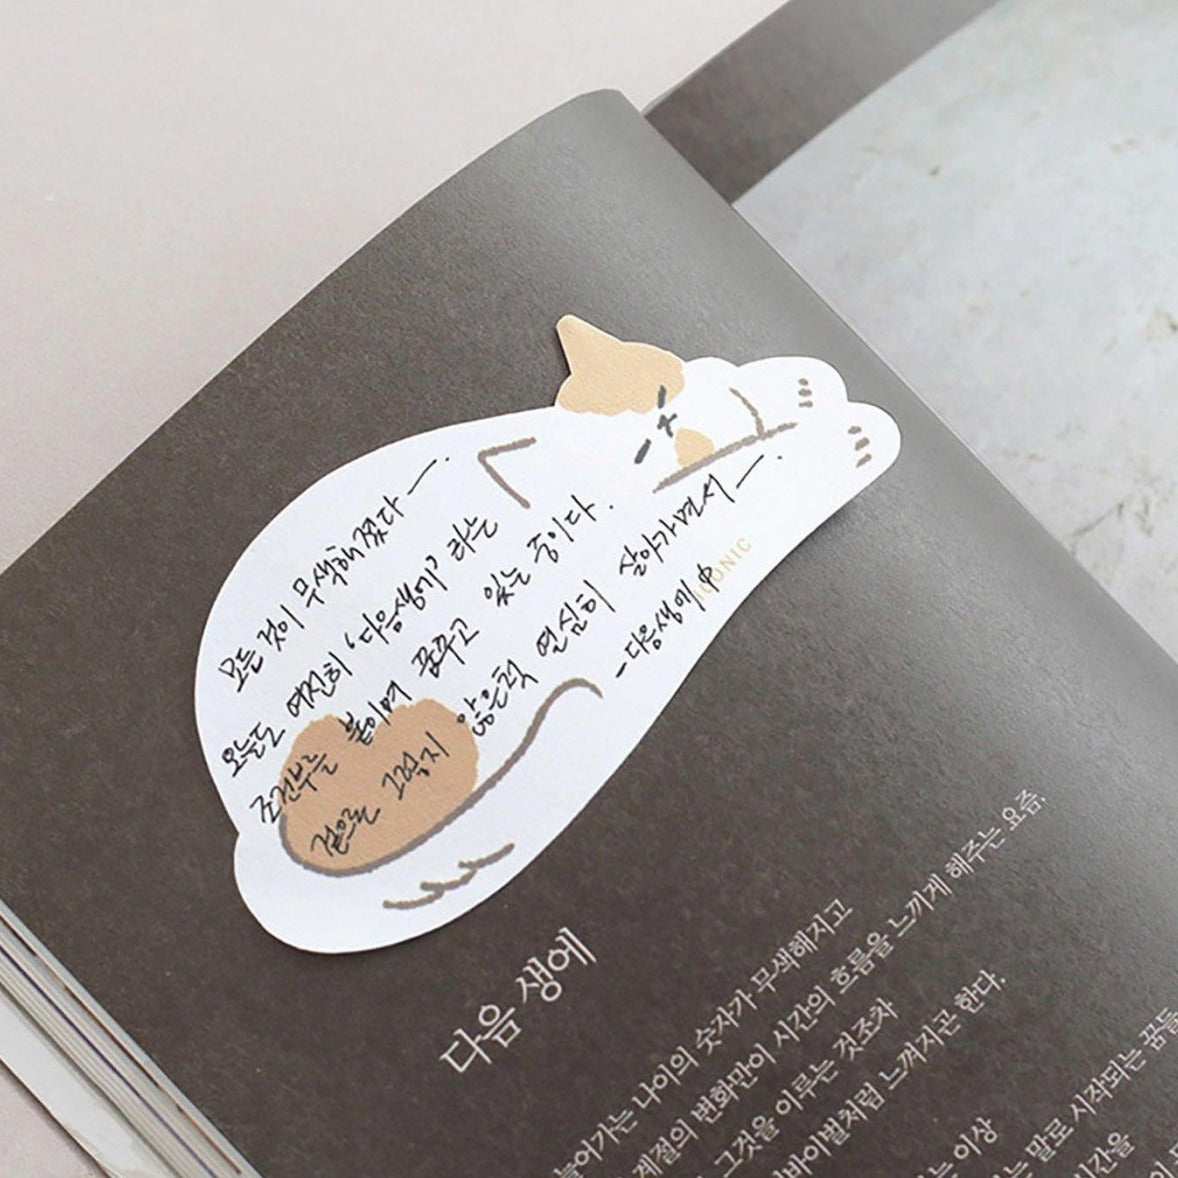 모든 것이 무색해졌다 —.
오늘도 여전히 '다음생에' 라는
조건부를 붙이며 꿈꾸고 있는 중이다.
겉으론 그렇지 않은척 열심히 살아가면서 —.
- 다음생에 中
ICONIC
다음 생에
늘어가는 나이의 숫자가 무색해지고
계절의 변화만이 시간의 흐름을 느끼게 해주는 요즘.
그것을 이루는 것조차
바이벌처럼 느껴지곤 한다.
이상
는 말로 시작되는 꿈들
시간을